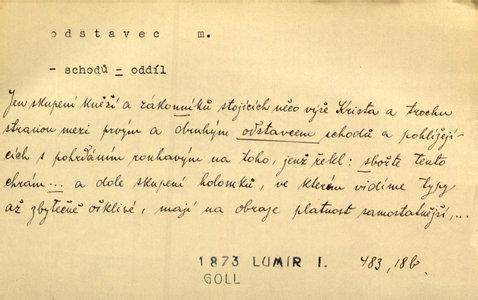 odstavec m.
- schodů = oddíl
Jen skupení kněží a zákonníků stojících něco výše Krista a trochu
stranou mezi prvým a druhým odstavcem schodů a pohlížejí-
cích s pohrdáním rouhavým na toho, jenž řekl: sbořte tento
chrám... a dole skupení holomků, ve kterém vidíme typy
až zbytečně ošklivé, mají na obraze platnost samostatnější,...
1873 LUMÍR I. 483, 18b.
GOLL